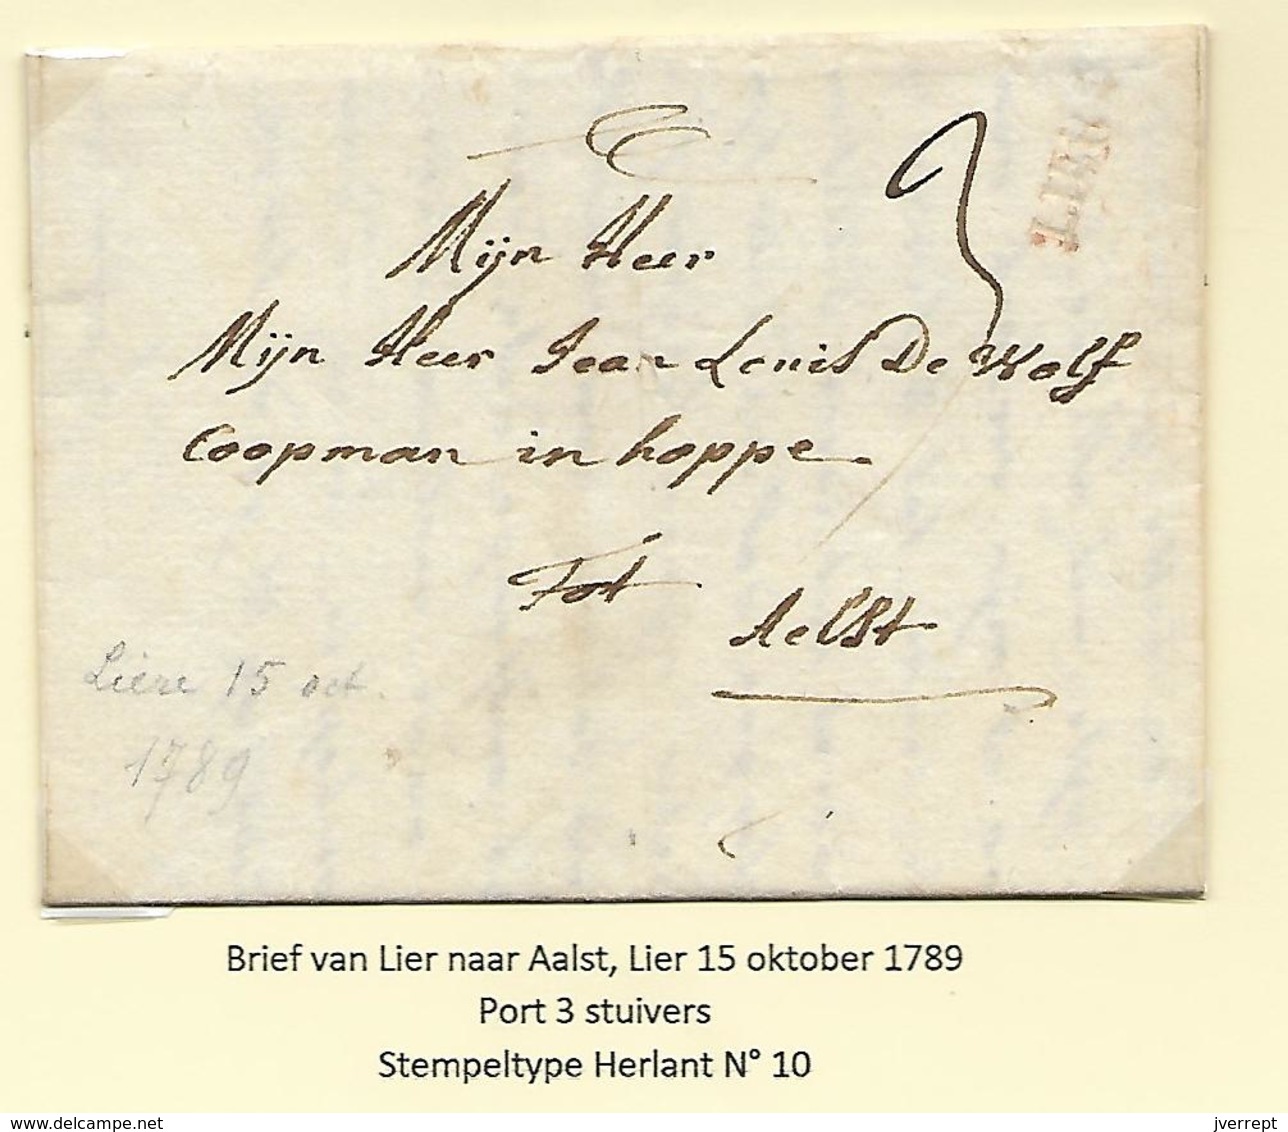 3
Mijn Heer
Mijn Heer Jean Louis De Wolf
Coopman in hoppe
Tot
Aelst
Liere 15 oct.
1789
Brief van Lier naar Aalst, Lier 15 oktober 1789
Port 3 stuivers
Stempeltype Herlant N° 10
www.delcampe.net
jverrept